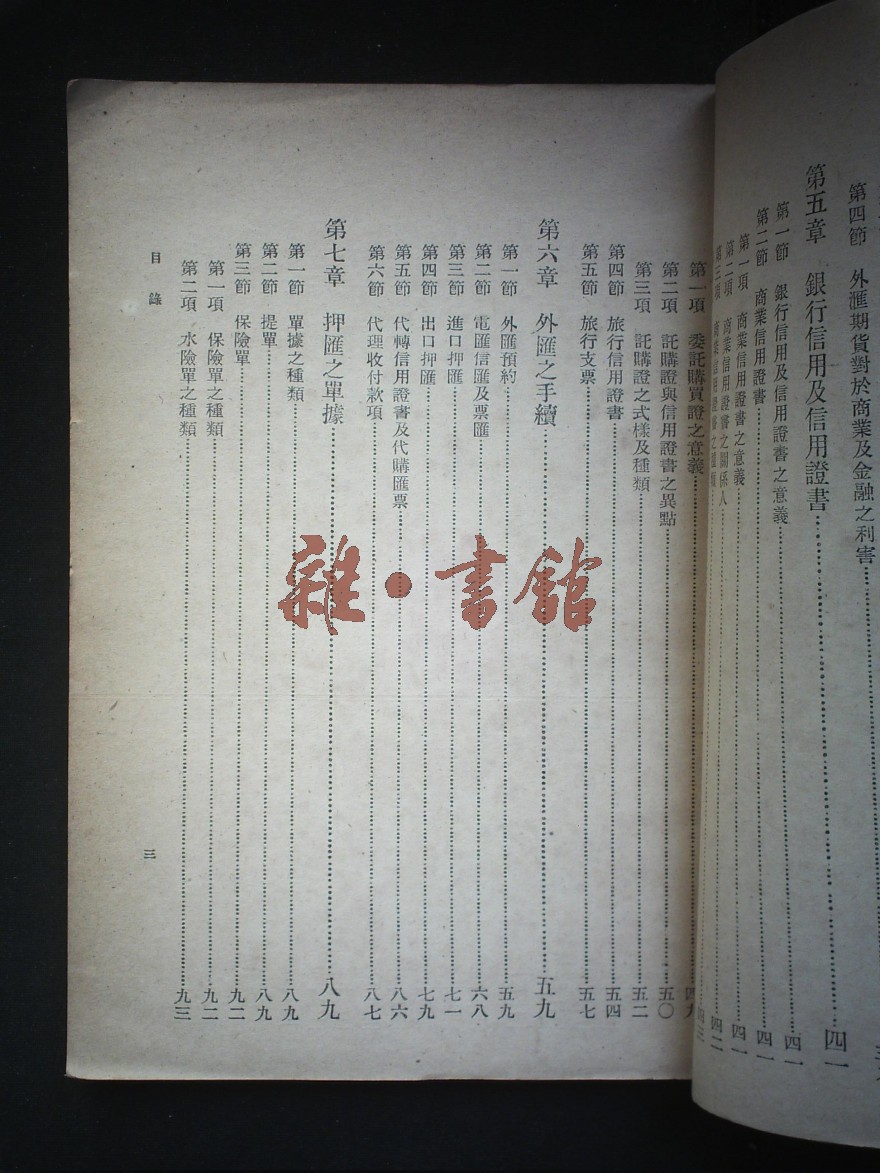 第四節　外滙期貨對於商業及金融之利害
第五章　銀行信用及信用證書……四一
第一節　銀行信用及信用證書之意義……四一
第二節　商業信用證書……四一
第一項　商業信用證書之意義……四一
第二項　商業信用證書之關係人……四二
第三項　商業信用證書之種類
第一項　委託購買證之意義……四九
第二項　託購證與信用證書之異點……五〇
第三項　託購證之式樣及種類……五二
第四節　旅行信用證書……五四
第五節　旅行支票……五七
第六章　外滙之手續……五九
第一節　外滙預約……五九
第二節　電滙信滙及票滙……六八
第三節　進口押滙……七一
第四節　出口押滙……七九
第五節　代轉信用證書及代購滙票……八六
第六節　代理收付款項……八七
第七章　押滙之單據……八九
第一節　單據之種類……八九
第二節　提單……八九
第三節　保險單……九二
第一項　保險單之種類……九二
第二項　水險單之種類……九三
目錄
三
雜·書館